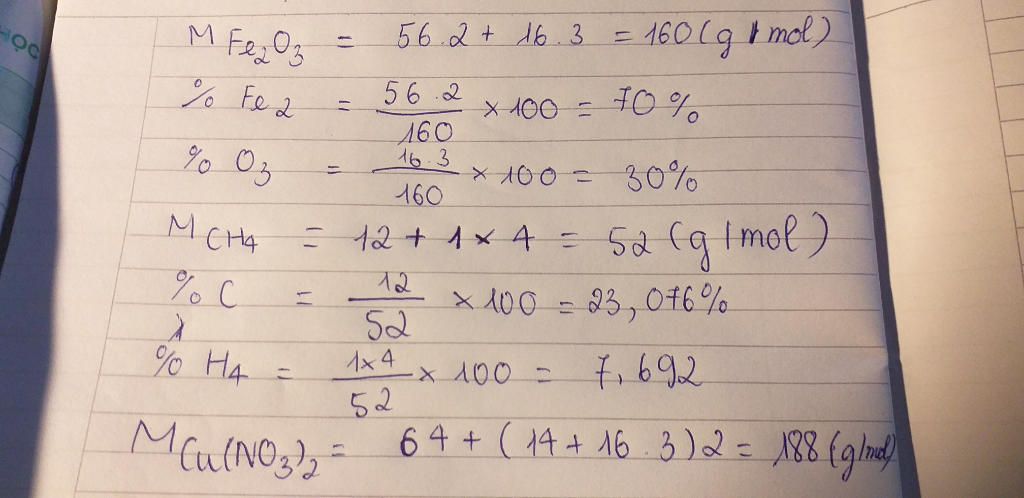 HỌC
M Fe₂O₃ = 56.2 + 16.3 = 160 (g/mol)
% Fe₂ = 56.2/160 × 100 = 70%
% O₃ = 16.3/160 × 100 = 30%
M CH₄ = 12 + 1 × 4 = 52 (g/mol)
% C = 12/52 × 100 = 23,076%
% H₄ = 1×4/52 × 100 = 7,692
M Cu(NO₃)₂ = 64 + (14 + 16.3)2 = 188 (g/mol)